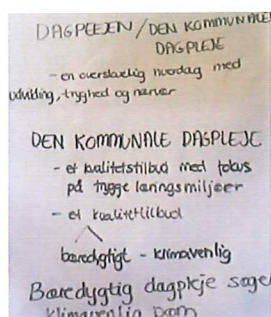 DAGPLEJEN/DEN KOMMUNALE
DAGPLEJE
- en overskuelig hverdag med
udvikling, tryghed og nærvær
DEN KOMMUNALE DAGPLEJE
- et kvalitetstilbud med fokus
på trygge læringsmiljøer
- et kvalitetstilbud
bæredygtigt - klimavenlig
Bæredygtig dagpleje søger
klimavenlig